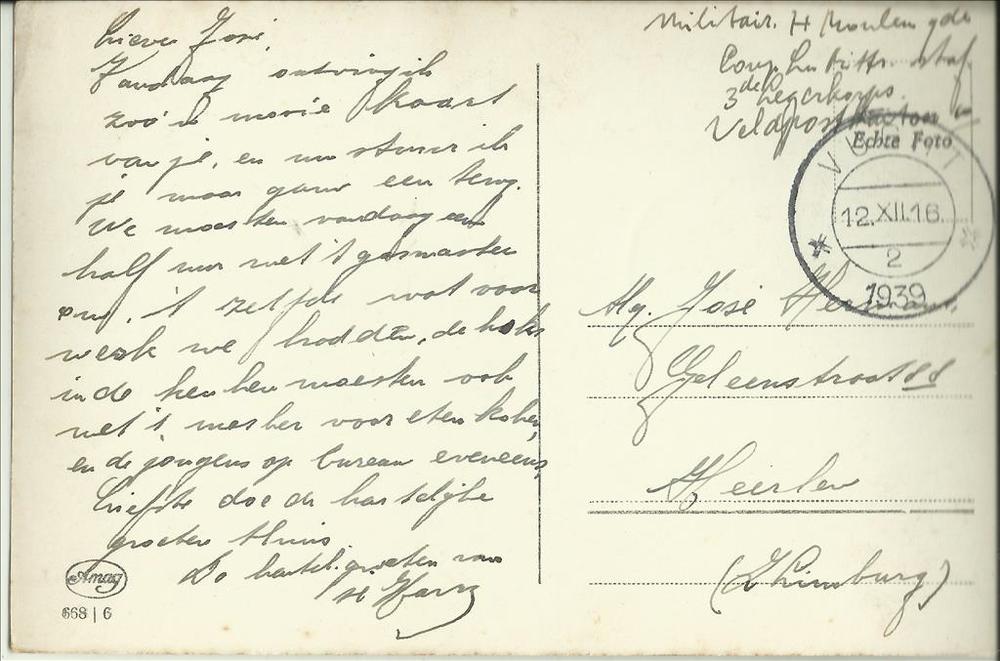 Lieve José,
Vandaag ontving ik
zoo'n mooie kaart
van je, en nu stuur ik
je maar gauw een terug.
We moesten vandaag een
half uur met 't gasmasker
op, 't zelfde wat voor
werk we hadden, de koks
in de keuken moesten ook
met 't masker voor eten koken,
en de jongens op bureau eveneens,
Liefste doe de hartelijke
groeten thuis
De hartel. groeten van
Harry
Amag
668 | 6
Militair. H
3de Legerkorps.
Veldpost
Echte Foto
VUGHT
12.XII.16.
2
1939
Mej. José
Geleenstraat
Heerlen
(Z Limburg)